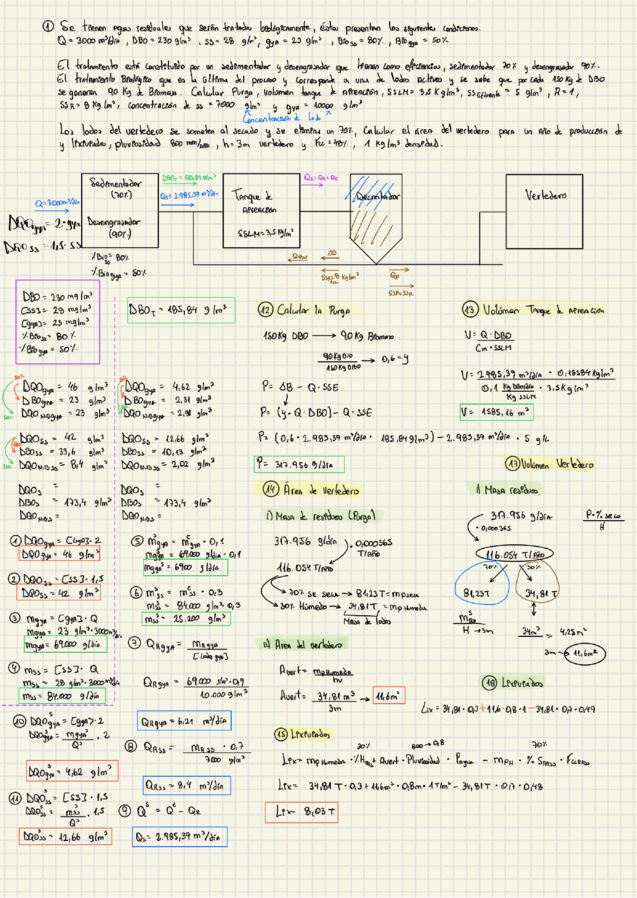 ① Se tienen aguas residuales que serán tratadas biológicamente, éstas presentan las siguientes condiciones.
Q = 3000 m³/día, DBO = 230 g/m³, SS = 28 g/m³, gyA = 23 g/m³, Bioss = 80%, Biogya = 50%
El tratamiento está constituido por un sedimentador y desengrasador que tienen como eficiencias, sedimentador 70% y desengrasador 90%.
El tratamiento Biológico que es la última del proceso y corresponde a una de lodos activos y se sabe que por cada 150 Kg de DBO
se generan 90 Kg de Biomasa. Calcular Purga, volumen tanque de aireación, SSLM = 3,5 Kg/m³, SSEfluente = 5 g/m³, R = 1,
SSR = 8 Kg/m³, concentración de ss = 7000 g/m³ y gya = 10000 g/m³
Concentración de lodo
Los lodos del vertedero se someten al secado y se elimina un 70%, Calcular el área del vertedero para un año de producción de
y lixiviados, pluviosidad 800 mm/año, h = 3m vertedero y Fcc = 48%, 1 Kg/m³ densidad.
DBOT = 185,84 g/m³
Q = 3000 m³/día
Sedimentador
(70%)
Desengrasador
(90%)
Qs = 2.985,39 m³/día
Tanque de
Aireación
SSLM = 3,5 Kg/m³
Decantador
Vertedero
DQOgya = 2·gya
DQOss = 1,5·SS
%Bioss = 80%
%Biogya = 50%
ΔB
SSR = 8 Kg/m³
QP
SSP = SSR
DBO = 230 mg/m³
[SS] = 28 mg/m³
[gya] = 23 mg/m³
%Bioss = 80%
%Biogya = 50%
DBOT = 185,84 g/m³
DQOgya = 46 g/m³
DBOgya = 23 g/m³
DQONBgya = 23 g/m³
DQOss = 42 g/m³
DBOss = 33,6 g/m³
DQONBss = 8,4 g/m³
DQOs =
DBOs = 173,4 g/m³
DQONBs =
DQOgya = 4,62 g/m³
DBOgya = 2,31 g/m³
DQONBgya = 2,31 g/m³
DQOss = 12,66 g/m³
DBOss = 10,13 g/m³
DQONBss = 2,02 g/m³
DQOs =
DBOs = 173,4 g/m³
DQONBs =
① DQOgya = [gya]·2
DQOgya = 46 g/m³
② DQOss = [SS]·1,5
DQOss = 42 g/m³
③ mgya = [gya]·Q
mgya = 23 g/m³·3000 m³/día
mgya = 69.000 g/día
④ mss = [SS]·Q
mss = 28 g/m³·3000 m³/día
mss = 84.000 g/día
⑤ mˢgya = mᵉgya · 0,1
mˢgya = 69.000 g/día · 0,1
mgyaˢ = 6900 g/día
⑥ mˢss = mᵉss · 0,3
mˢss = 84.000 g/día · 0,3
mssˢ = 25.200 g/día
⑦ QRgya = mRgya / [Lodo gya]
QRgya = 69.000 g/día · 0,9 / 10.000 g/m³
QRgya = 6,21 m³/día
⑧ QRss = mRss · 0,7 / 7000 g/m³
QRss = 8,4 m³/día
⑨ Qˢ = Qᵉ - QR
Qs = 2.985,39 m³/día
⑩ DQOˢgya = [gya]·2
DQOˢgya = mgyaˢ / Qˢ · 2
DQOˢgya = 4,62 g/m³
⑪ DQOˢss = [SS]·1,5
DQOˢss = mssˢ / Qˢ · 1,5
DQOˢss = 12,66 g/m³
⑫ Calcular la Purga
150 Kg DBO → 90 Kg Biomasa
90 Kg Bio / 150 Kg DBO → 0,6 = y
P = ΔB - Q·SSE
P = (y·Q·DBO) - Q·SSE
P = (0,6 · 2.985,39 m³/día · 185,84 g/m³) - 2.985,39 m³/día · 5 g/L
P = 317.956 g/día
⑬ Volúmen Tanque de Aireación
V = Q·DBO / Cm·SSLM
V = 2.985,39 m³/día · 0,18584 Kg/m³ / 0,1 Kg DBO/día / Kg SSLM · 3,5 Kg/m³
V = 1585,16 m³
⑭ Área de vertedero
i) Masa de residuo (Purga)
317.956 g/día
· 0,000365
T/Año
116.054 T/Año
70% se seca → 81,23 T = mpseca
30% Húmedo → 34,81 T = mpHumeda
Masa de lodo
ii) Area del vertedero
Avert = mpHumeda / hv
Avert = 34,81 m³ / 3m → 11,6 m²
⑮ Lixiviados
30% 800→0,8 70%
Lix = mpHumeda · %HRes + Avert · Pluviosidad · Pagua - mpH · % SRASD · FCCRASD
Lix = 34,81 T · 0,3 + 11,6 m² · 0,8 m · 1 T/m³ - 34,81 T · 0,7 · 0,48
Lix = 8,03 T
⑰ Volúmen Vertedero
i) Masa residuo
317.956 g/día
· 0,000365
P·% seco / H
116.054 T/Año
70%
30%
81,23 T
34,81 T
H → 3m
34 m³ → 4,28 m²
3m → 11,6 m²
⑱ Lixiviados
Lix = 34,81 · 0,3 + 11,6 · 0,8 · 1 - 34,81 · 0,7 · 0,49